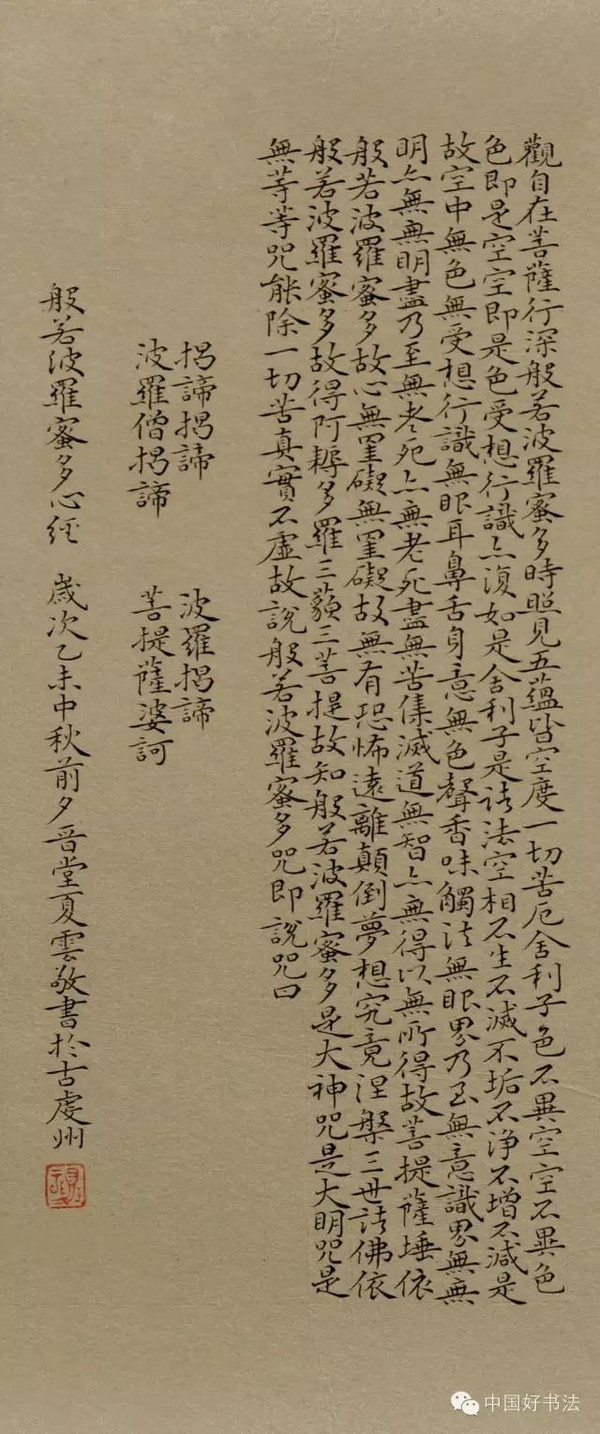 觀自在菩薩行深般若波羅蜜多時照見五蘊皆空度一切苦厄舍利子色不異空空不異色
色即是空空即是色受想行識亦復如是舍利子是諸法空相不生不滅不垢不淨不增不減是
故空中無色無受想行識無眼耳鼻舌身意無色聲香味觸法無眼界乃至無意識界無無
明亦無無明盡乃至無老死亦無老死盡無苦集滅道無智亦無得以無所得故菩提薩埵依
般若波羅蜜多故心無罣礙無罣礙故無有恐怖遠離顛倒夢想究竟涅槃三世諸佛依
般若波羅蜜多故得阿耨多羅三藐三菩提故知般若波羅蜜多是大神咒是大明咒是
無等等咒能除一切苦真實不虛故說般若波羅蜜多咒即說咒曰
揭諦揭諦 波羅揭諦
波羅僧揭諦 菩提薩婆訶
般若波羅蜜多心經 歲次乙未中秋前夕晉堂夏雲敬書於古處州
中国好书法